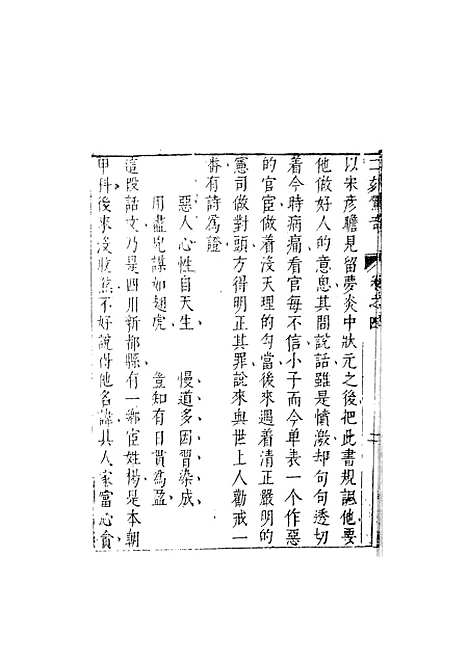 二刻驚奇　卷之四　二
以宋彦瞻見留夢炎中狀元之後把此書規諷他要
他做好人的意息其間說話雖是憤激却句句透切
着今時病痛看官每不信小子而今单表一个作惡
的官宦做着沒天理的勾當後來遇着清正嚴明的
憲司做對頭方得明正其罪說來與世上人勸戒一
番有詩爲證
惡人心性自天生　慢道多因習染成
用盡兇謀如翅虎　豈知有日貫爲盈
這段話文乃是四川新都縣有一鄉宦姓楊是本朝
甲科後來沒收煞不好說得他名諱其人家富心貪